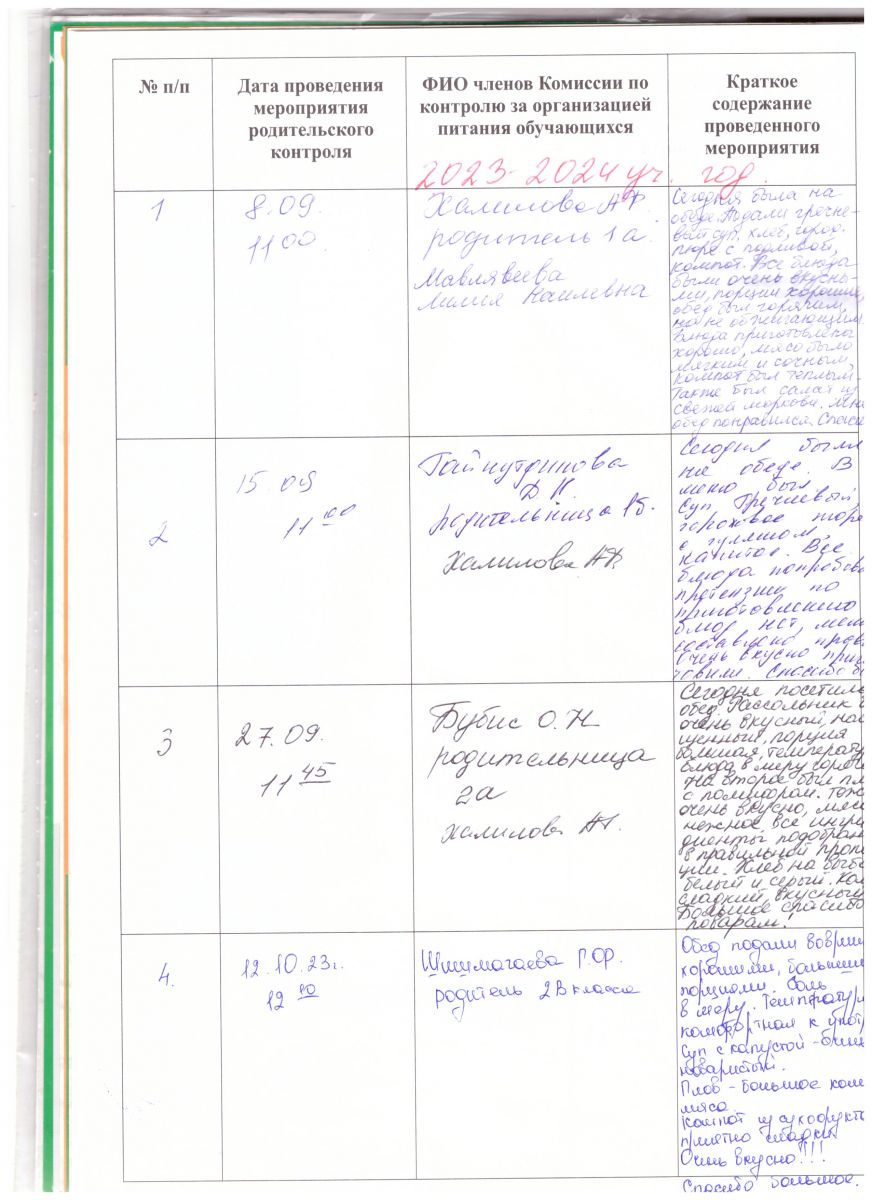 № п/п
Дата проведения
мероприятия
родительского
контроля
ФИО членов Комиссии по
контролю за организацией
питания обучающихся
Краткое
содержание
проведенного
мероприятия
2023-2024 уч. год.
1
8.09.
11 00.
Халилова А.Ф.
родитель 1 а.
Мавлявиева
Лилия Наилевна
Сегодня была на
обеде. Подали гречне-
вый суп, хлеб, горох.
пюре с подливой,
компот. Все блюда
были очень вкусны-
ми, порции хорошие,
обед был горячим,
но не обжигающим.
Блюда приготовлены
хорошо, мясо было
мягким и сочным,
компот был теплым.
Также был салат из
свежей моркови. Мне
обед понравился. Спаси
2
15.09
11 00
Гайнутдинова
Д Н.
родительница 1б.
Халилова А.Ф.
Сегодня были
на обеде. В
меню был
суп гречневый,
гороховое пюре
с гуляшом,
напиток. Все
блюда попробова
претензии по
приготовлению
блюд нет, меню
очень вкусно приго
товили. Спасибо б
3
27.09.
11 45
Бубис О.Н
родительница
2а
Халилова А.Ф.
Сегодня посетила
обед. Рассольник
очень вкусный, нас
щенный, порция
большая, температу
блюда в меру горяч
На второе был пл
с помидором. Тоже
очень вкусно, мясо
нежное, все ингре
диенты подобран
в правильной пропо
ции. Хлеб на выбо
белый и серый. Ком
сладкий, вкусный
Большое спасибо
поварам!
4.
12.10.23г.
12 10
Г.Ф.
родитель 2В класса
Обед подали воврем
хорошими, большим
порциями. Соль
в меру. Температур
комфортная к упот
Суп с капустой -
наваристый.
Плов - большое кол
мяса
Компот из сухофрукто
приятно сладкий
Очень вкусно!!!
Спасибо большое.